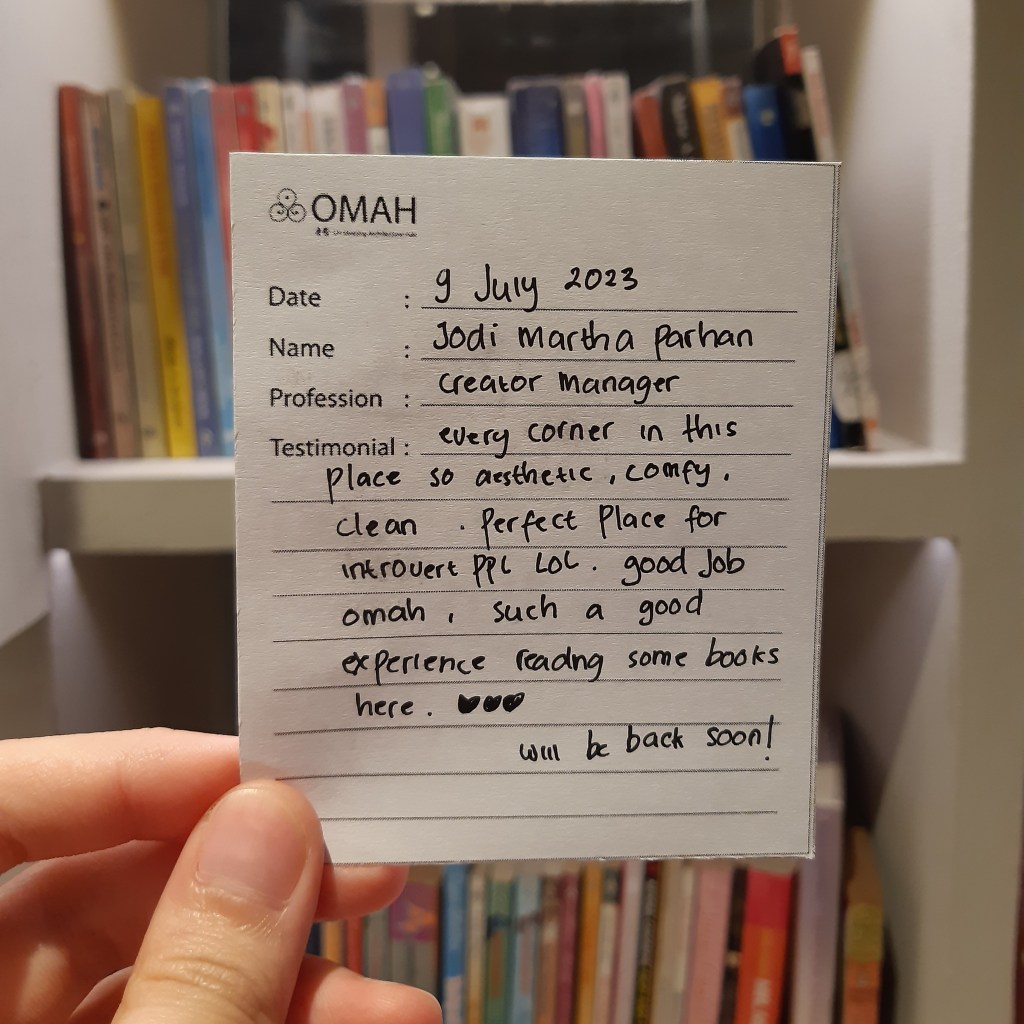 OMAH
Date : 9 July 2023
Name : Jodi Martha Parhan
Profession : Creator Manager
Testimonial : every corner in this
place so aesthetic , comfy ,
clean . Perfect Place for
introvert ppl LOL . good Job
omah , such a good
experience readng some books
here . ♥♥♥
will be back soon!